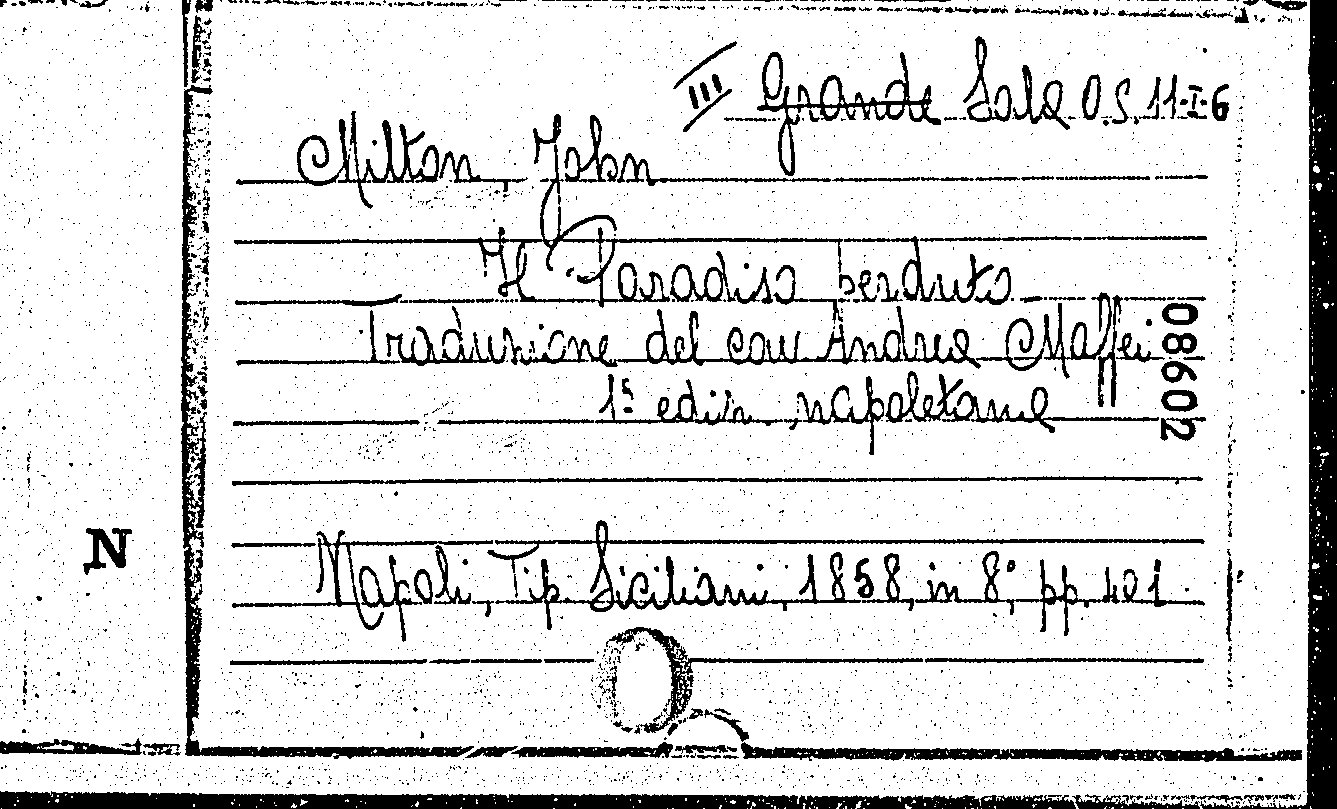 III Grande Sala O.S. 11-I-6
Milton, John
Il Paradiso perduto
Traduzione del cav Andrea Maffei
1ª ediz. napoletana
08602
N
Napoli, Tip. Siciliani, 1858, in 8°, pp. 401.